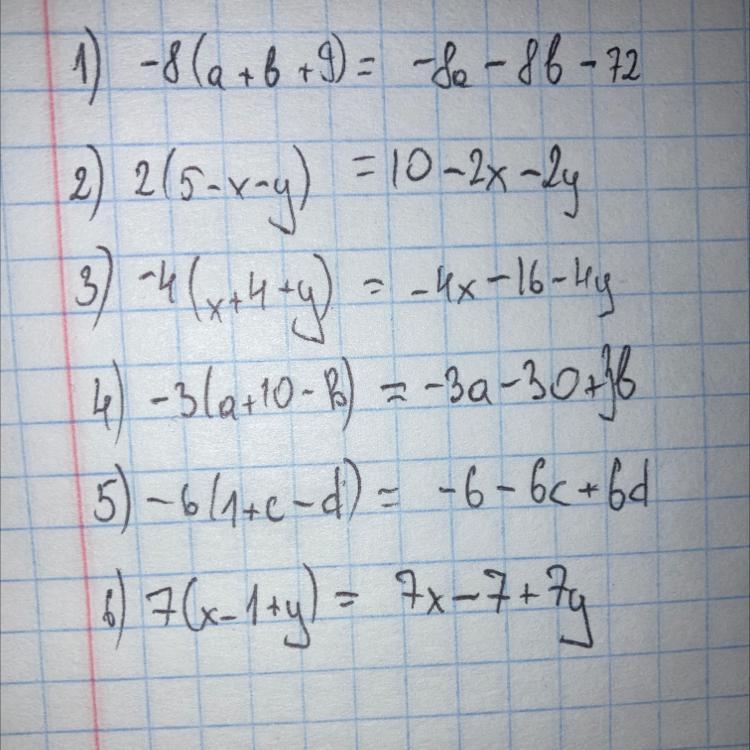 1) -8(a+b+9) = -8a - 8b - 72
2) 2(5-x-y) = 10 - 2x - 2y
3) -4(x+4+y) = -4x - 16 - 4y
4) -3(a+10-b) = -3a - 30 + 3b
5) -6(1+c-d) = -6 - 6c + 6d
6) 7(x-1+y) = 7x - 7 + 7y